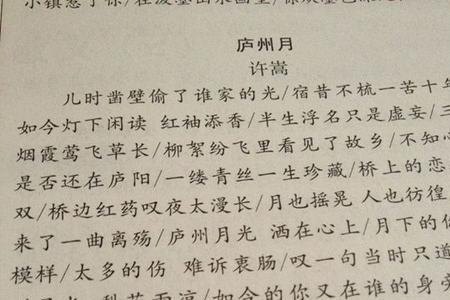 小镇惹了你/在泼墨山水画里/你从墨色深
庐州月
许嵩
儿时凿壁偷了谁家的光/宿昔不梳一苦十年
如今灯下闲读 红袖添香/半生浮名只是虚妄/三
烟霞莺飞草长/柳絮纷飞里看见了故乡/不知心
是否还在庐阳/一缕青丝一生珍藏/桥上的恋
双/桥边红药叹夜太漫长/月也摇晃 人也彷徨
来了一曲离殇/庐州月光 洒在心上/月下的你
模样/太多的伤 难诉衷肠/叹一句当时只道
梨花雨凉/如今的你又在谁的身旁